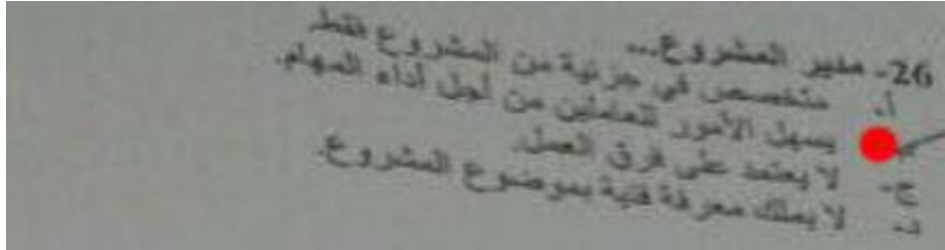 26- مدير المشروع...
أ. متخصص في جزئية من المشروع فقط
يسهل الأمور للعاملين من أجل أداء المهام.
ج- لا يعتمد على فرق العمل.
د- لا يملك معرفة فنية بموضوع المشروع.